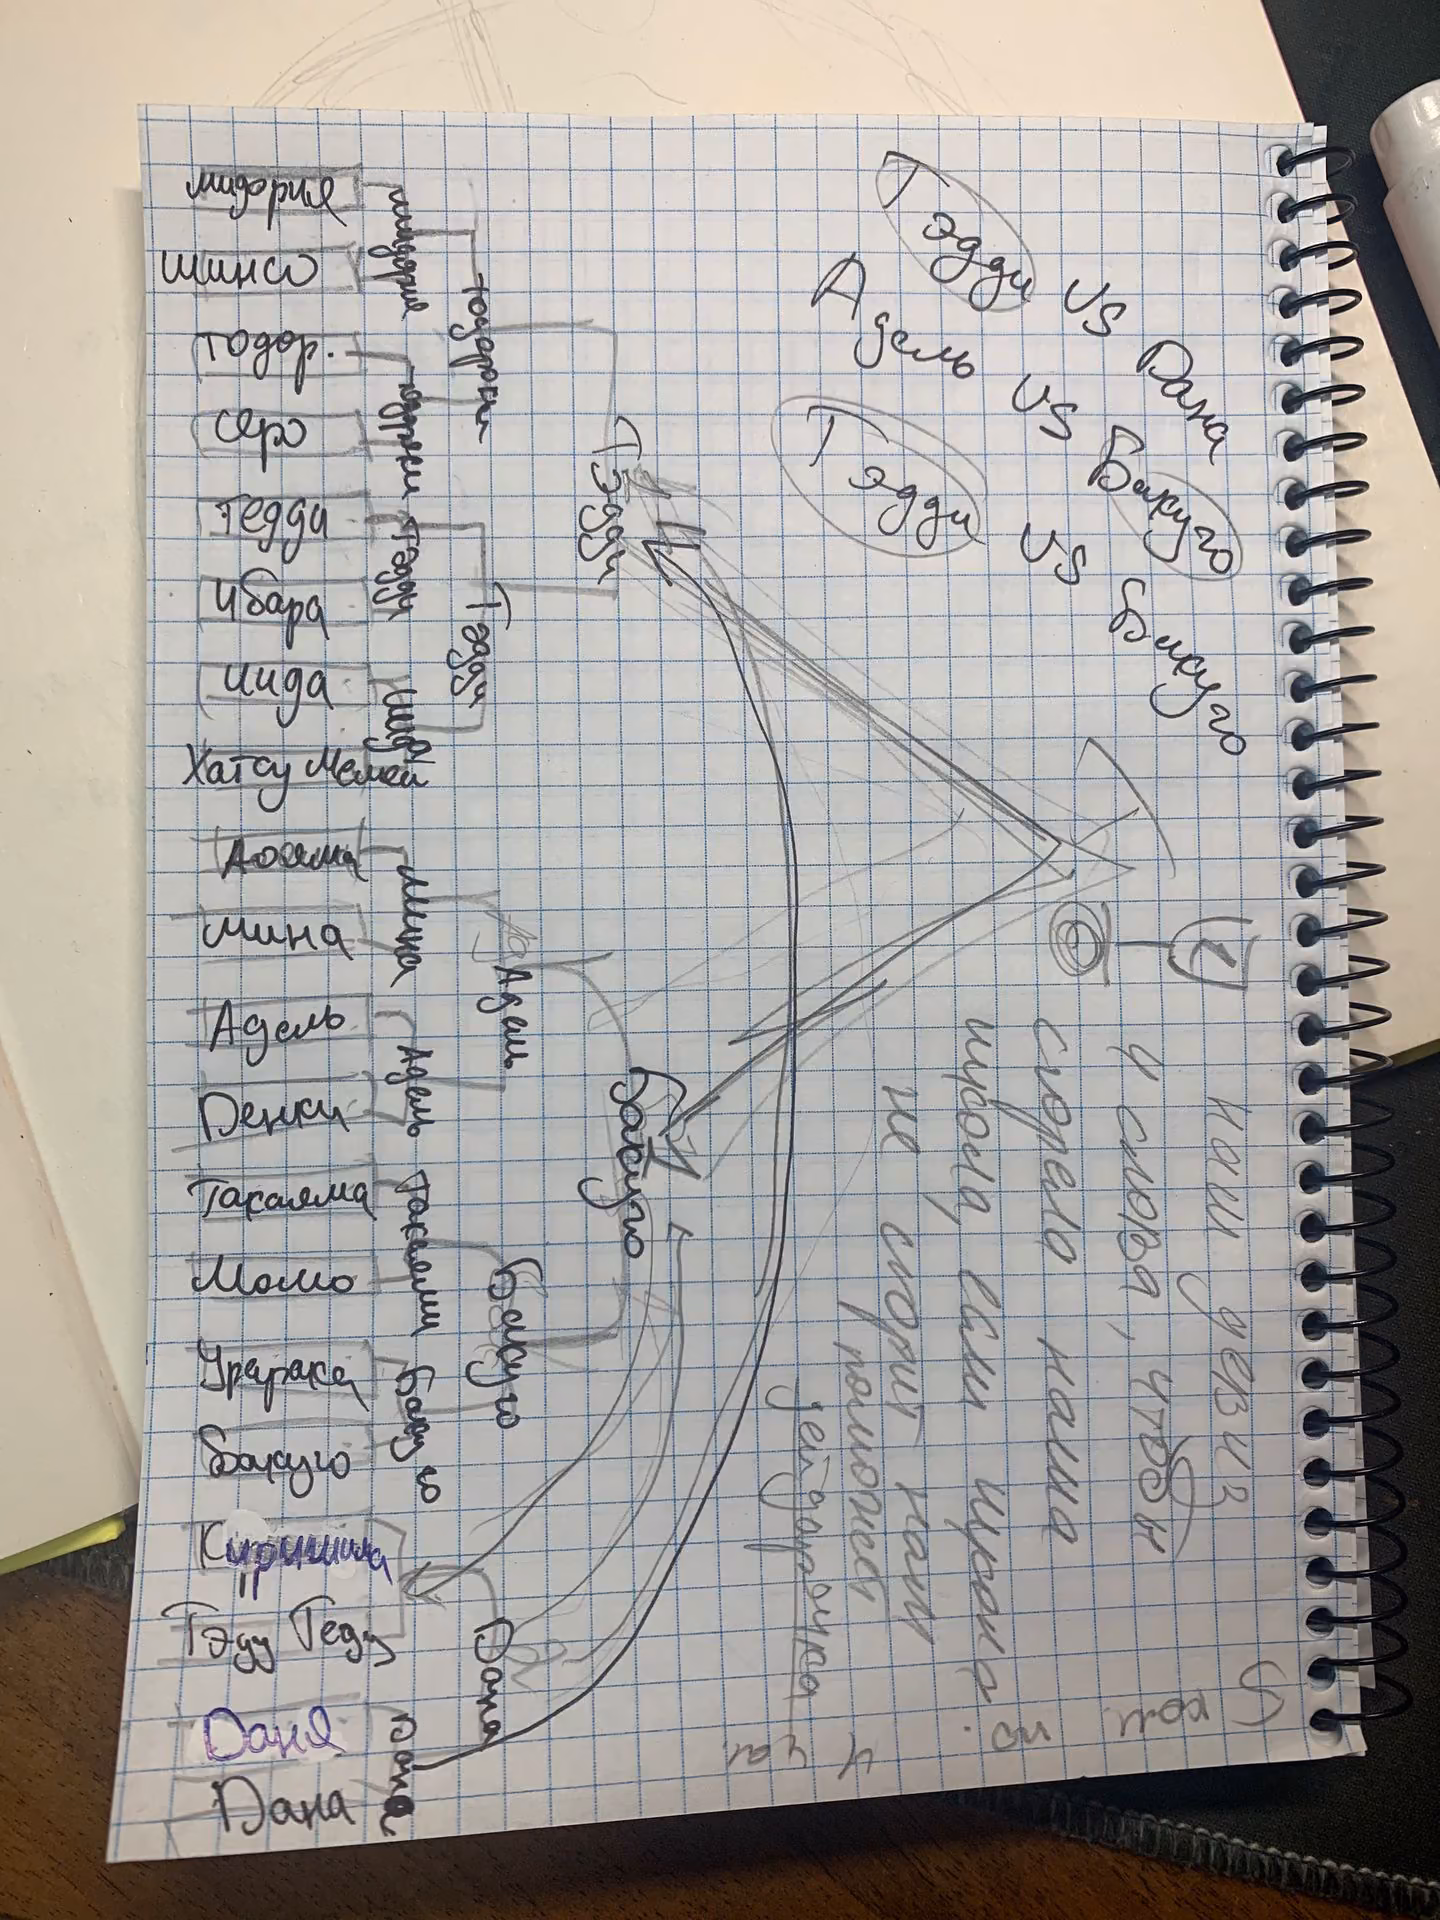 Мидория
Шинсо
Тодор.
Серо
Тедди
Ибара
Иида
Хатсу Мемеи
Аояма
Мина
Адель
Денки
Такаяма
Момо
Урарака
Бакуго
Киришима
Тэду Теду
Даня
Дана
Мидория
Тодороки
Тэдди
Иида
Мина
Адель
Такаями
Бакуго
Дана
Тодороки
Тэдди
Адель
Бакуго
Дана
Тэдди
Бакуго
Тэдди vs Дана
Адель vs Бакуго
Тэдди vs Бакуго
наш девиз
4 слова, чтобы
сгорела наша
школа, если школа
не сгорит нам
поможет
5
ком.
по
4
чел.